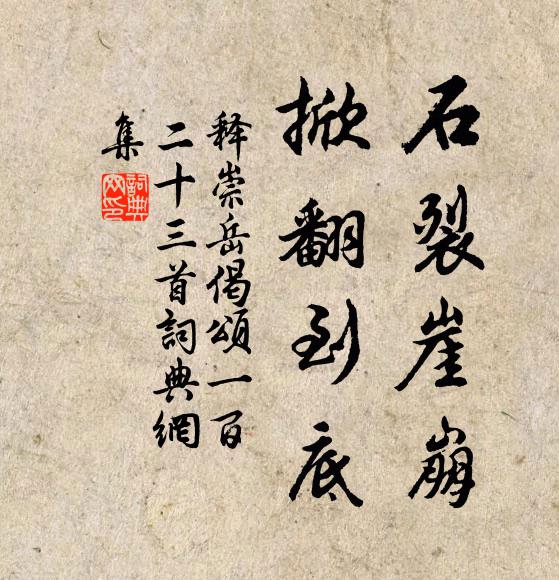 石裂崖崩
掀翻到底
释崇岳偈頌一百
二十三首詞典網
集
詞典
网印